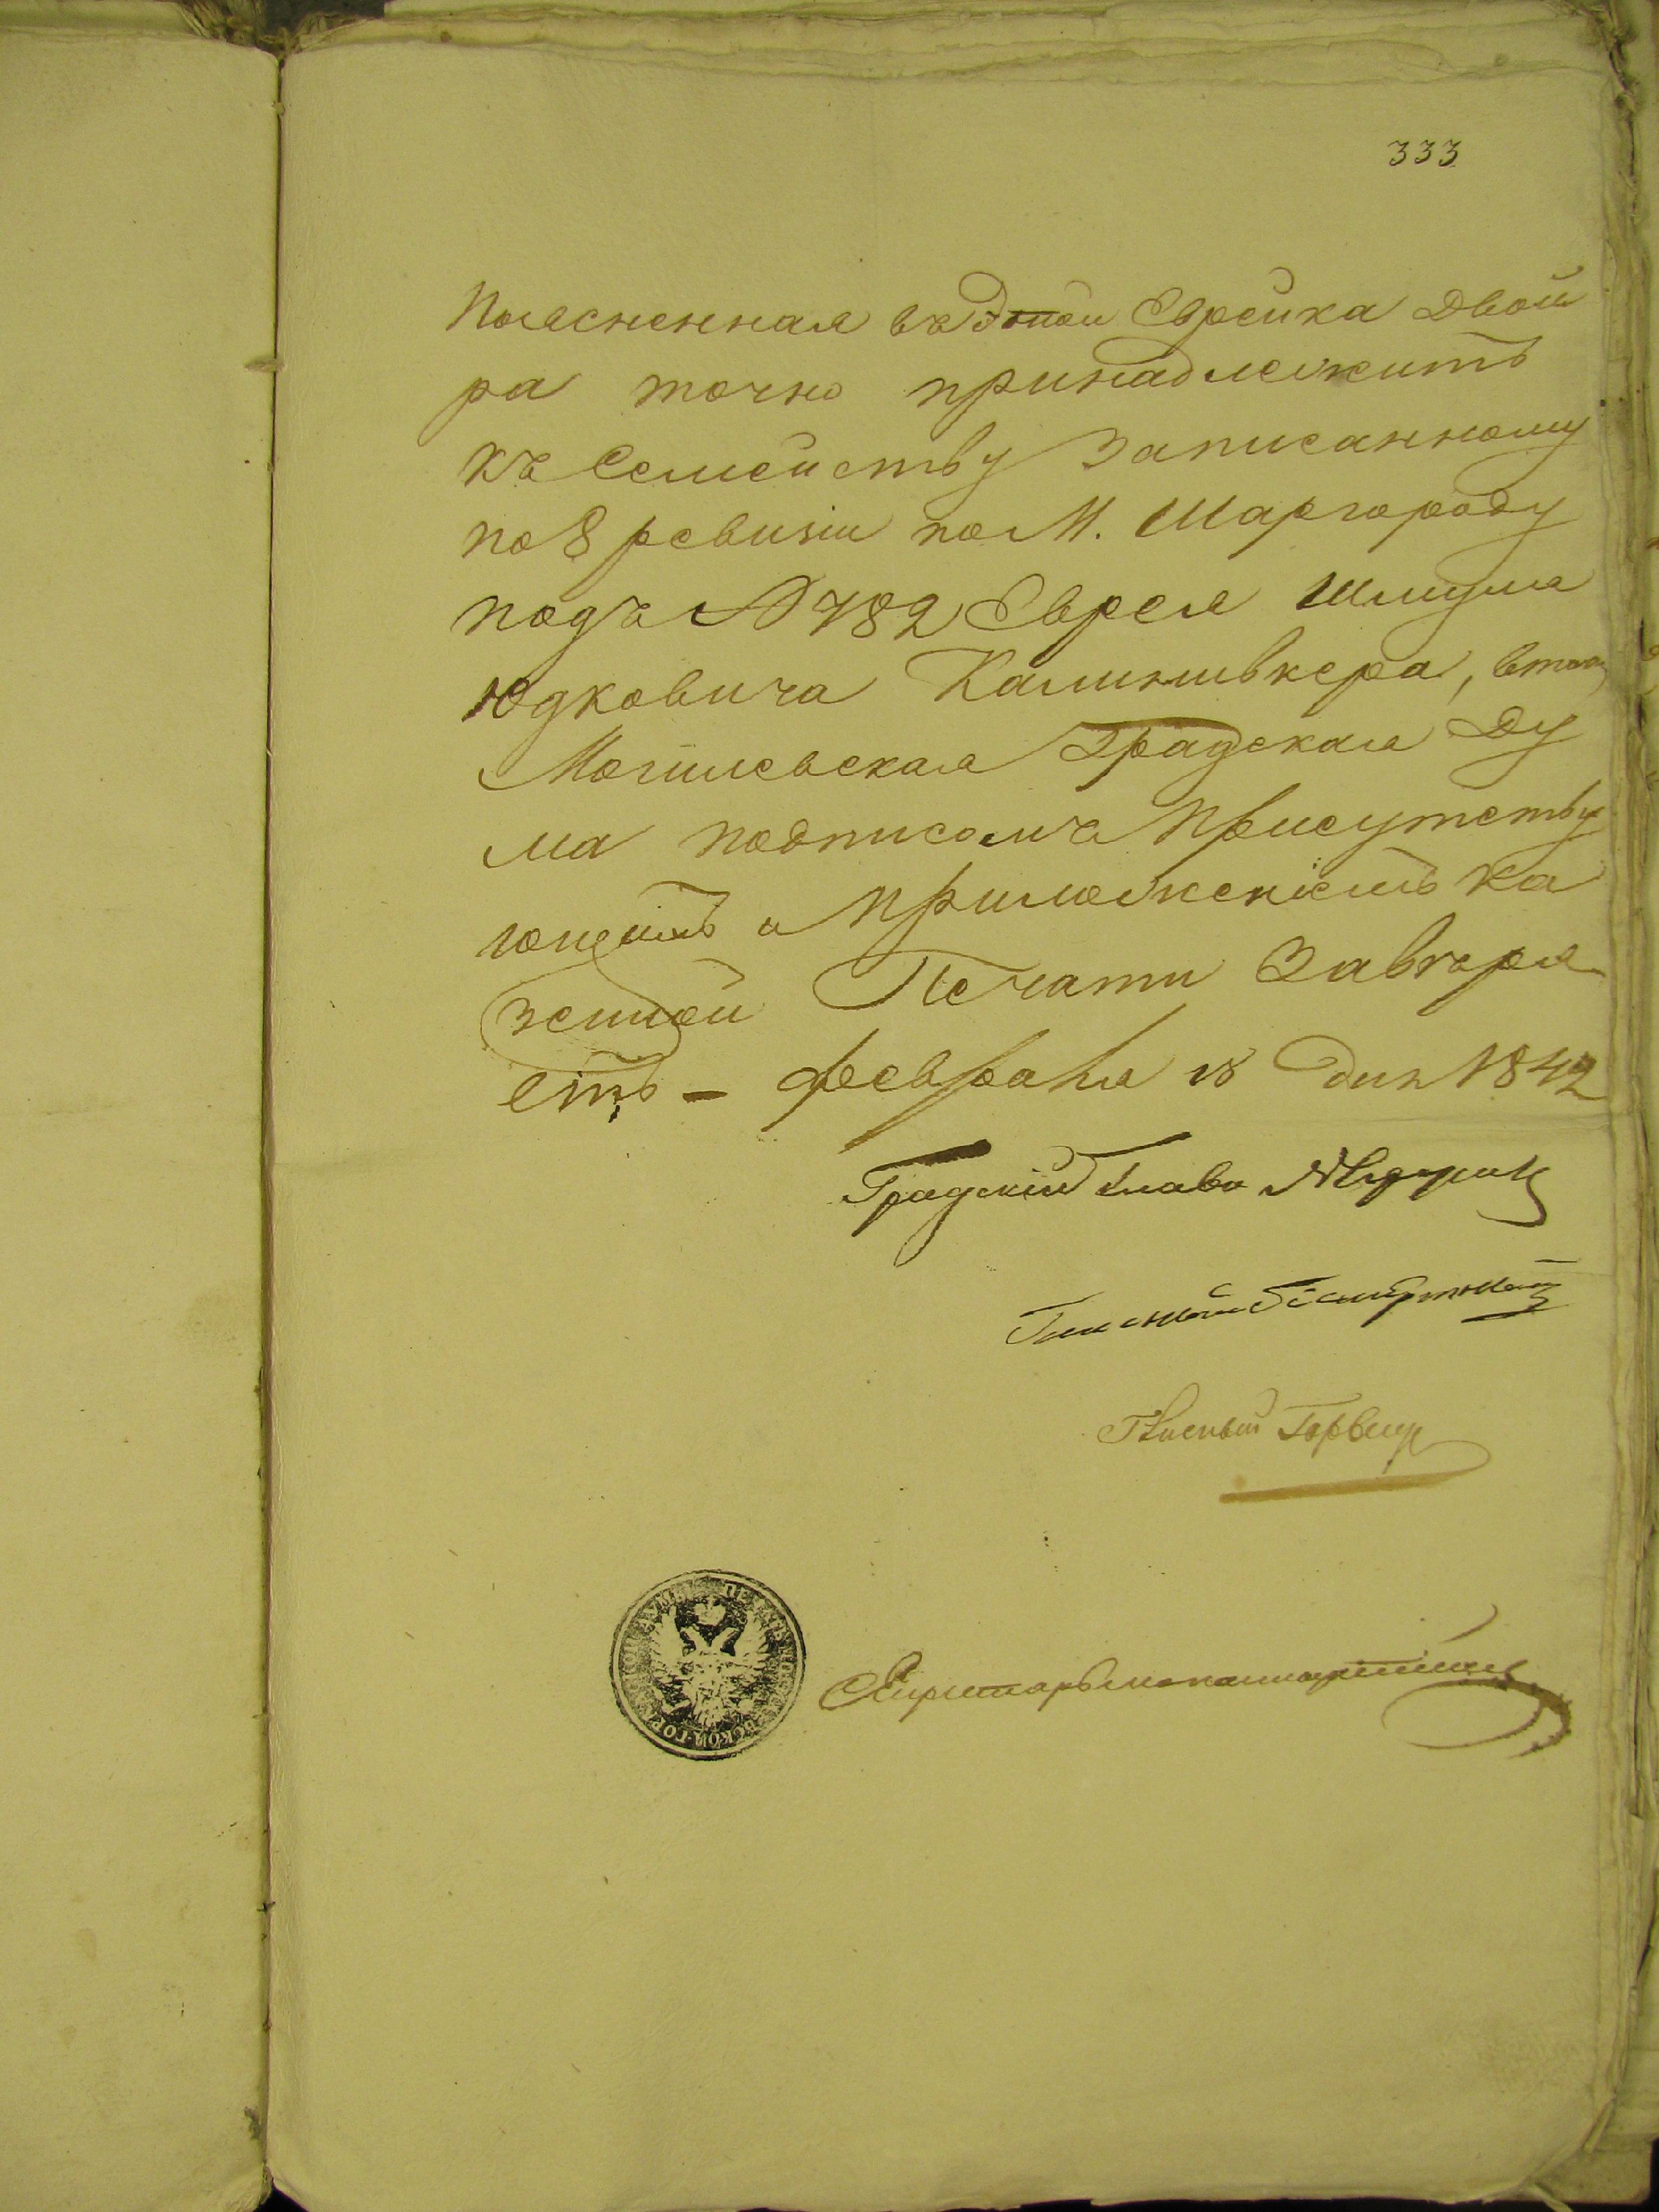 333
Поясненная въ этой Еврейка Двой
ра точно принадлежитъ
къ Семейству Записанному
по 8 ревизіи по М. Шаргороду
подъ № 782 Еврея Шмула
Юдковича Калинивкера, в томъ
Могилевская Градская Ду
ма подписомъ Присутству
ющихъ и Приложеніемъ Ка
зенной Печати Завѣря
етъ – февраля 18 дня 1842
Градскій Глава
Гласный
Гласный Горвиц
ПЕЧАТЬ МОГИЛЕВСКОЙ ГОРОДСКОЙ ДУМЫ
Секретарь